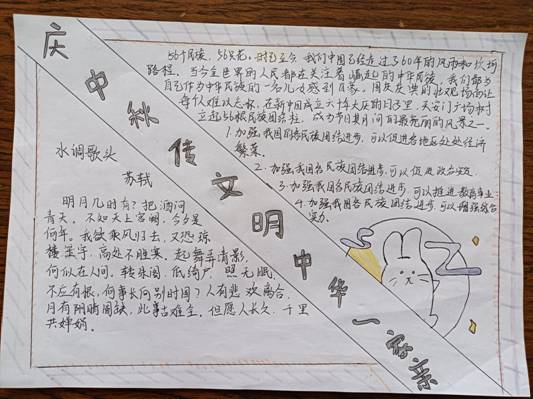 庆中秋传文明中华一家亲
56个民族,56朵花。时已至今 我们中国已经走过了60年的风雨和坎坷
路程。当今全世界的人民都在关注着崛起的中华民族,我们都为
自己作为中华民族的一名儿女感到自豪。国庆庆典的壮观场面让
每个人难以忘怀,在新中国成立六十年大庆的日子里,天安门广场树
立起56根民族团结柱,成为节日其间的最亮丽的风景之一。
1.加强我国各民族团结进步,可以促进各地区处处经济
繁荣。
2.加强我国各民族团结进步,可以促进政治安定。
3.加强我国各民族团结进步,可以推进教育事业。
4.加强我国各民族团结进步,可以增强综合
实力。
水调歌头
苏轼
明月几时有?把酒问
青天。不知天上宫阙,今夕是
何年。我欲乘风归去,又恐琼
楼玉宇,高处不胜寒。起舞弄清影,
何似在人间。转朱阁,低绮户,照无眠。
不应有恨,何事长向别时圆?人有悲欢离合,
月有阴晴圆缺,此事古难全。但愿人长久,千里
共婵娟。